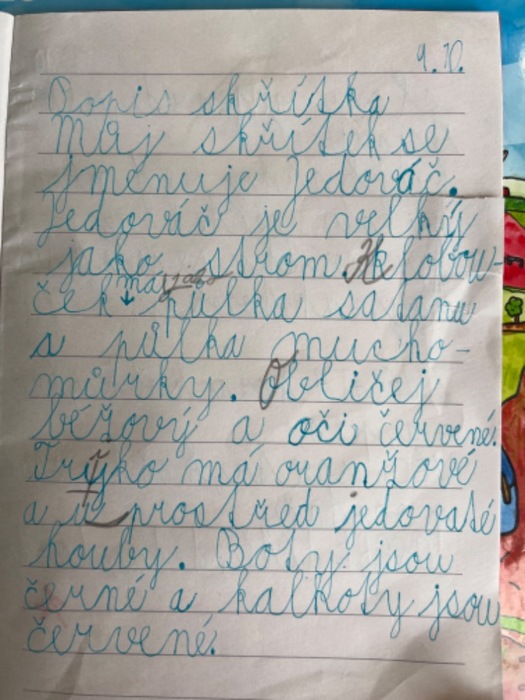 9. 10.
Popis skřítka
Můj skřítek se
jmenuje Jedováč.
Jedováč je velký
jako strom. Klobou-
ček má jako půlka satanu
a půlka mucho-
můrky. Obličej
béžový a oči červené.
Tryko má oranžové
a u prostřed jedovaté
houby. Boty jsou
černé a kalkoty jsou
červené.